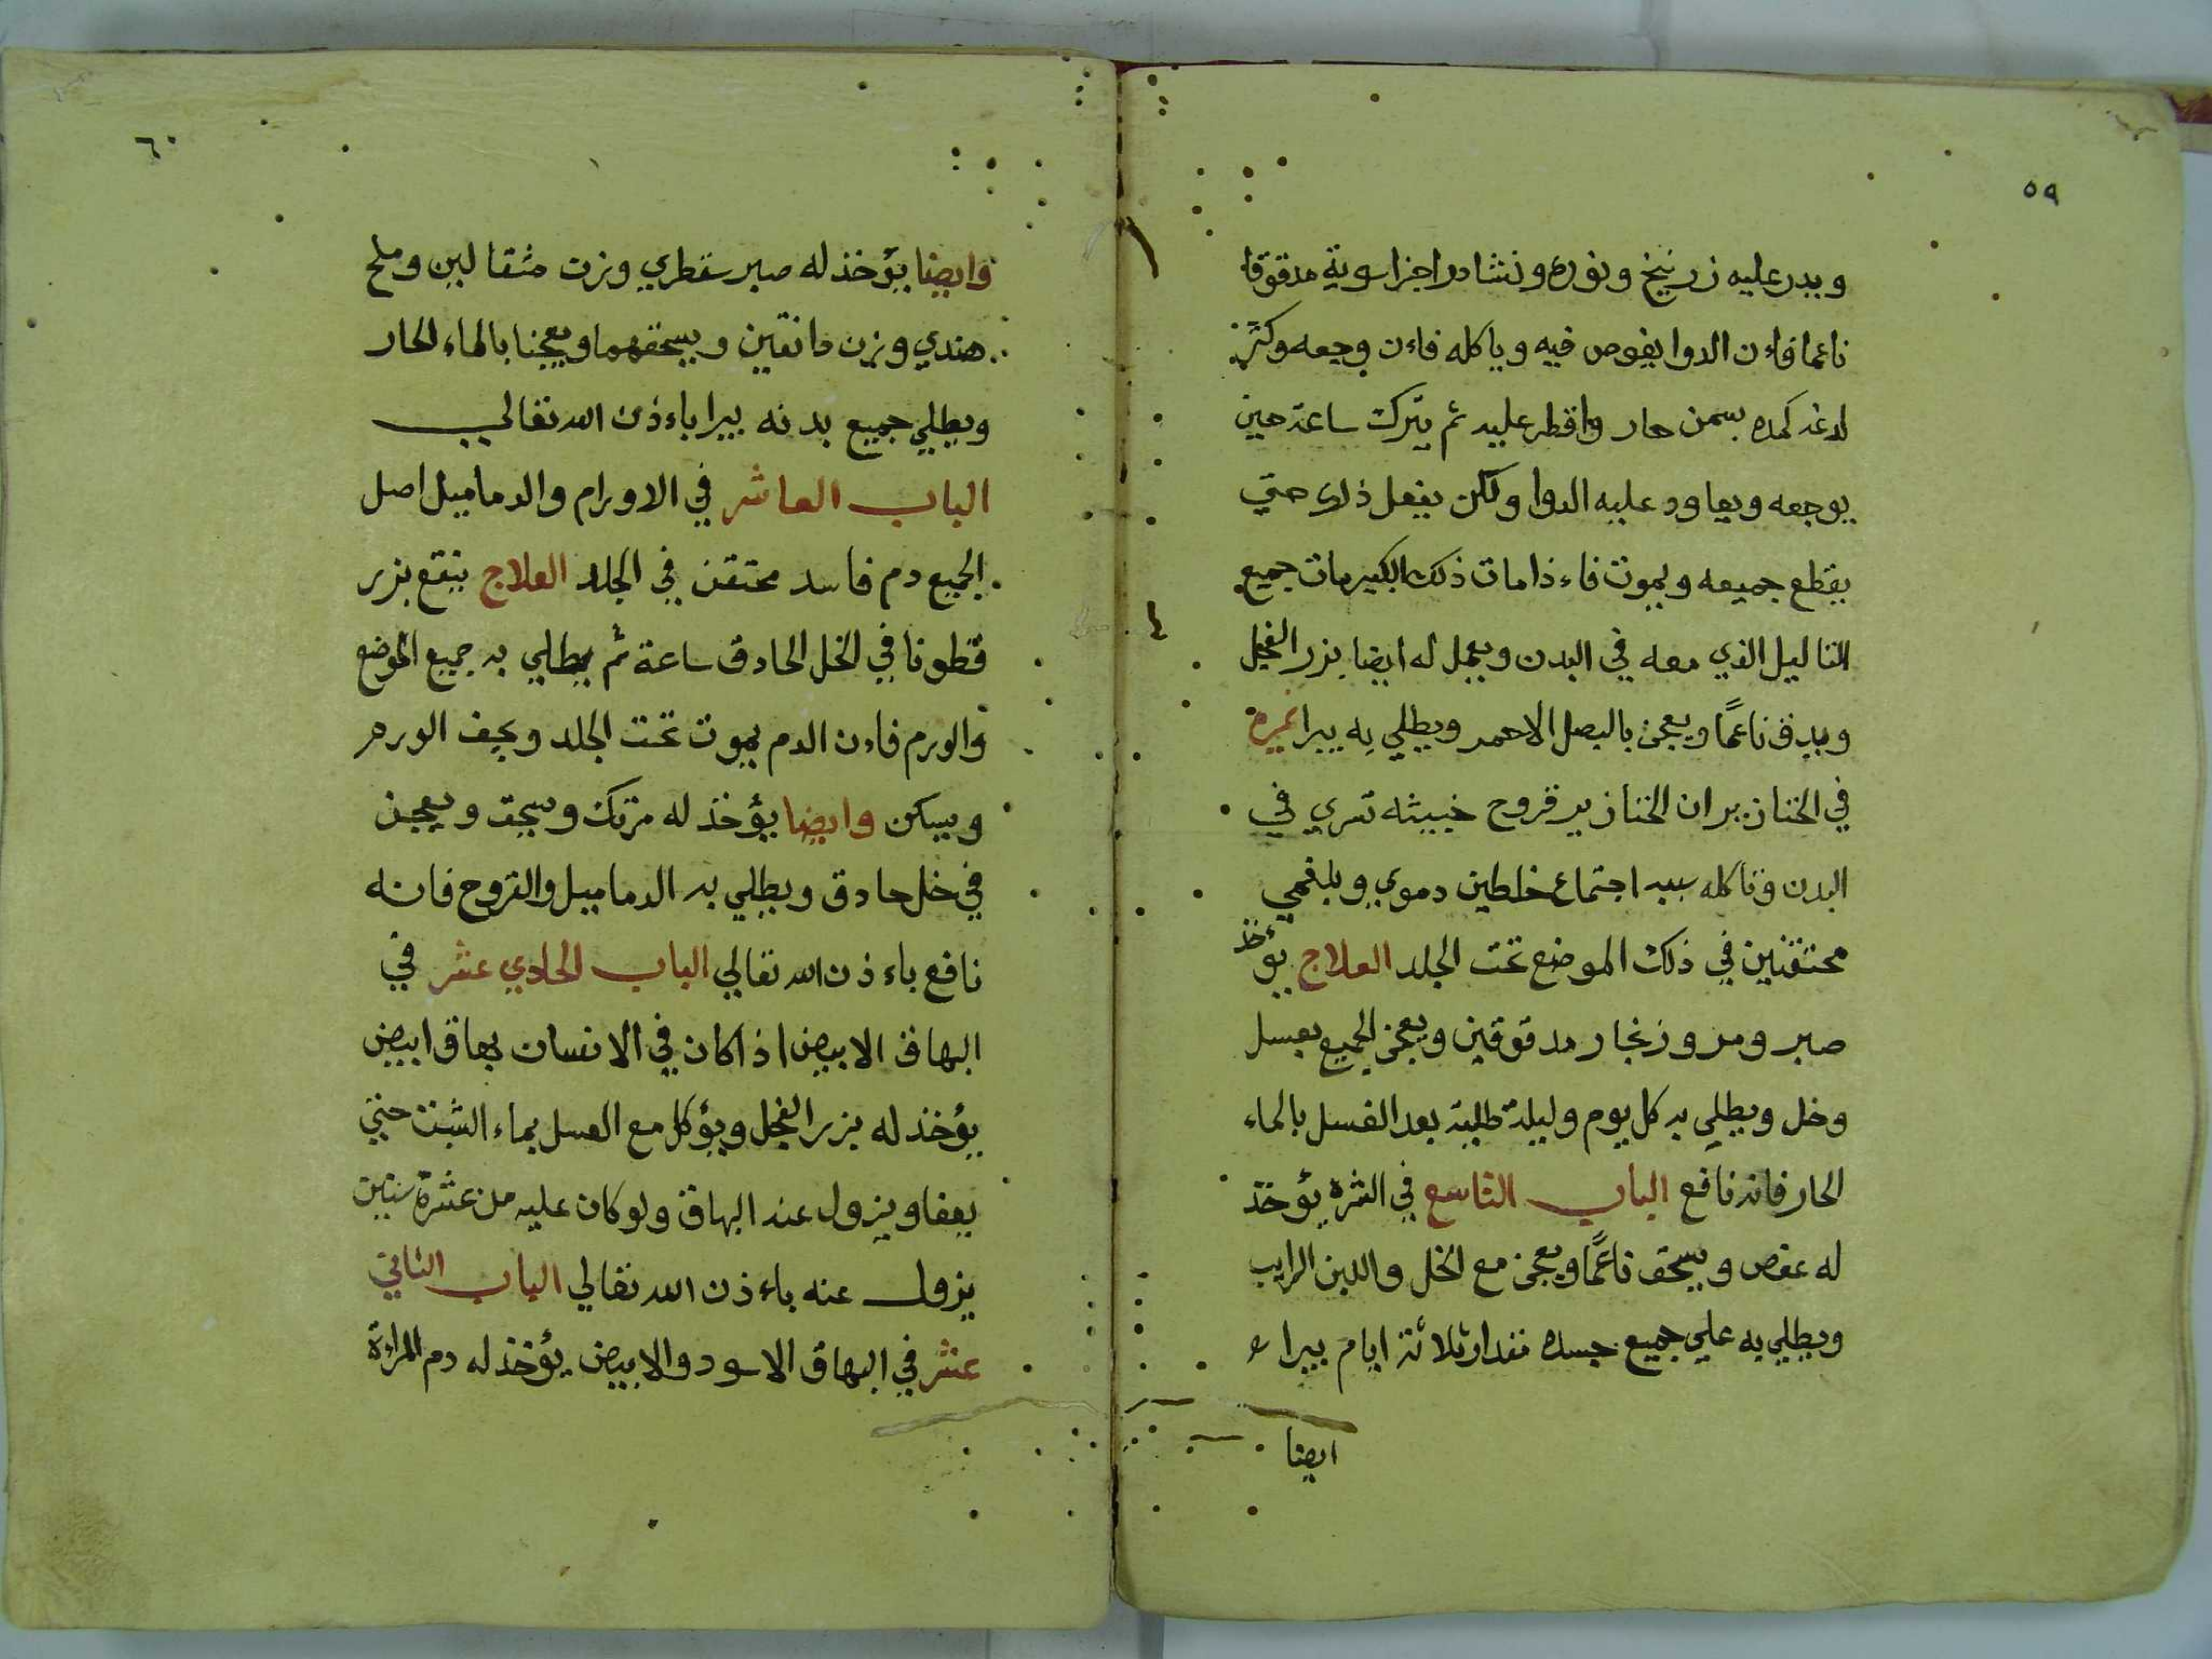 ٥٩
ويدر عليه زرنيخ ونوره ونشادر اجزا سوية مدقوقا
ناعما فاءن الدوا يغوص فيه وياكله فاءن وجعه وكثر
لدغه كمده بسمن حار واقطر عليه ثم يترك ساعة حين
يوجعه ويعاود عليه الدوا ولكن يفعل ذلك حتي
يقطع جميعه ويموت فاءذا مات ذلك الكبير مات جميع
التاليل الذي معه في البدن ويعمل له ايضا بزر الفجل
ويدق ناعمًا ويعجن بالبصل الاحمر ويطلي به يبرا غيره
في الخنازير ان الخنازير قروح خبيثه تسري في
البدن وتاكله سببه اجتماع خلطين دموي وبلغمي
محتقنين في ذلك الموضع تحت الجلد العلاج يؤخذ
صبر ومر وزنجار مدقوقين ويعجن الجميع بعسل
وخل ويطلي به كل يوم وليلة طلية بعد الغسل بالماء
الحار فانه نافع الباب التاسع في الشره يؤخذ
له عفص ويسحق ناعمًا ويعجن مع الخل واللبن الرايب
ويطلي به علي جميع جسده مقدار ثلاثة ايام يبرا
ايضا
٦٠
وايضا يؤخذ له صبر سقطري وزن مثقالين وملح
هندي وزن دانقين ويسحقهما ويعجنا بالماء الحار
ويطلي جميع بدنه يبرا باءذن الله تعالي
الباب العاشر في الاورام والدماميل اصل
الجميع دم فاسد محتقن في الجلد العلاج ينقع بزر
قطونا في الخل الحادق ساعة ثم يطلي به جميع الموضع
والورم فاءن الدم يموت تحت الجلد ويجف الورم
ويسكن وايضا يؤخذ له مرتك وسحق ويعجن
في خل حادق ويطلي به الدماميل والقروح فانه
نافع باءذن الله تعالي الباب الحادي عشر في
البهاق الابيض اذا كان في الانسان بهاق ابيض
يؤخذ له بزر الفجل ويؤكل مع العسل بماء الشبت حتي
يعفا ويزول عنه البهاق ولو كان عليه من عشرة سنين
يزول عنه باءذن الله تعالي الباب الثاني
عشر في البهاق الاسود والابيض يؤخذ له دم المراءة